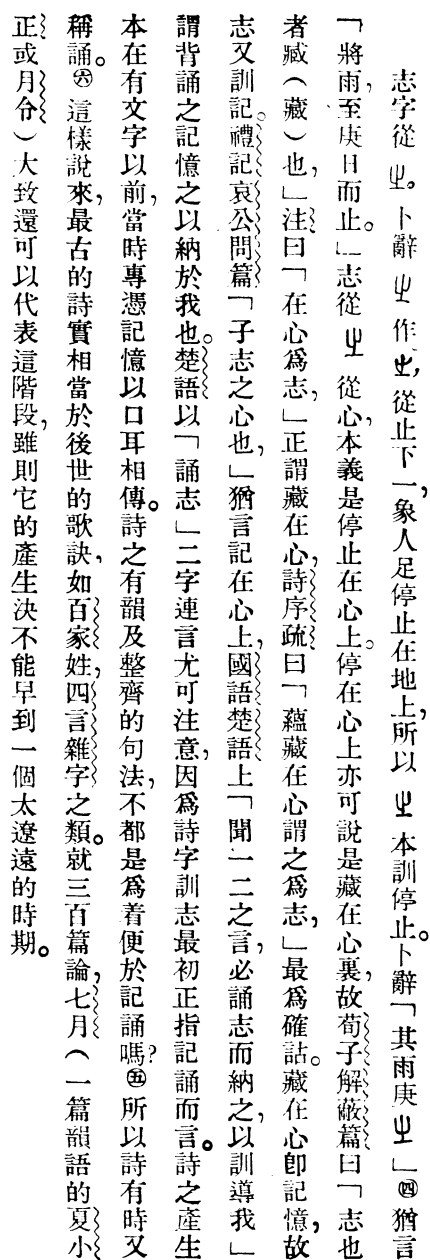 志字從㞢。卜辭㞢作㞢，從止下一，象人足停止在地上，所以㞢本訓停止。卜辭「其雨庚㞢」㊃猶言
「將雨，至庚日而止。」志從㞢從心，本義是停止在心上。停在心上亦可說是藏在心裏，故荀子解蔽篇曰「志也
者臧（藏）也，」注曰「在心爲志，」正謂藏在心，詩序疏曰「蘊藏在心謂之爲志，」最爲確詁。藏在心卽記憶，故
志又訓記。禮記哀公問篇「子志之心也，」猶言記在心上，國語楚語上「聞一二之言，必誦志而納之，以訓導我」
謂背誦之記憶之以納於我也。楚語以「誦志」二字連言尤可注意，因爲詩字訓志最初正指記誦而言。詩之產生
本在有文字以前，當時專憑記憶以口耳相傳。詩之有韻及整齊的句法，不都是爲着便於記誦嗎？㊄所以詩有時又
稱誦。㊅這樣說來，最古的詩實相當於後世的歌訣，如百家姓，四言雜字之類。就三百篇論，七月（一篇韻語的夏小
正或月令）大致還可以代表這階段，雖則它的產生決不能早到一個太遼遠的時期。